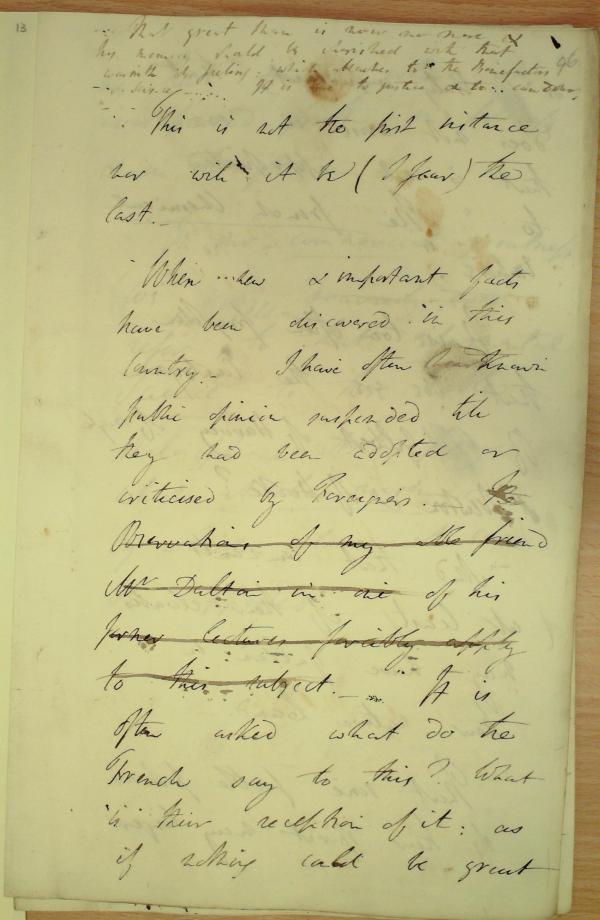 13
That great Man is now no more &
his memory should be cherished with that
warmth of feeling which attaches to the Benefactors 96
It is due to justice & to candour,
This is not the first instance
nor will it be ( I fear ) the
last. -
When new & important facts
have been discovered in this
Country - I have often known
public opinion suspended till
they had been adopted or
criticised by Foreigners. The
Observations of my able friend
Mr Dalton in one of his
former lectures forcibly apply
to this subject. - It is
often asked what do the
French say to this? What
is their reception of it: as
if nothing could be great